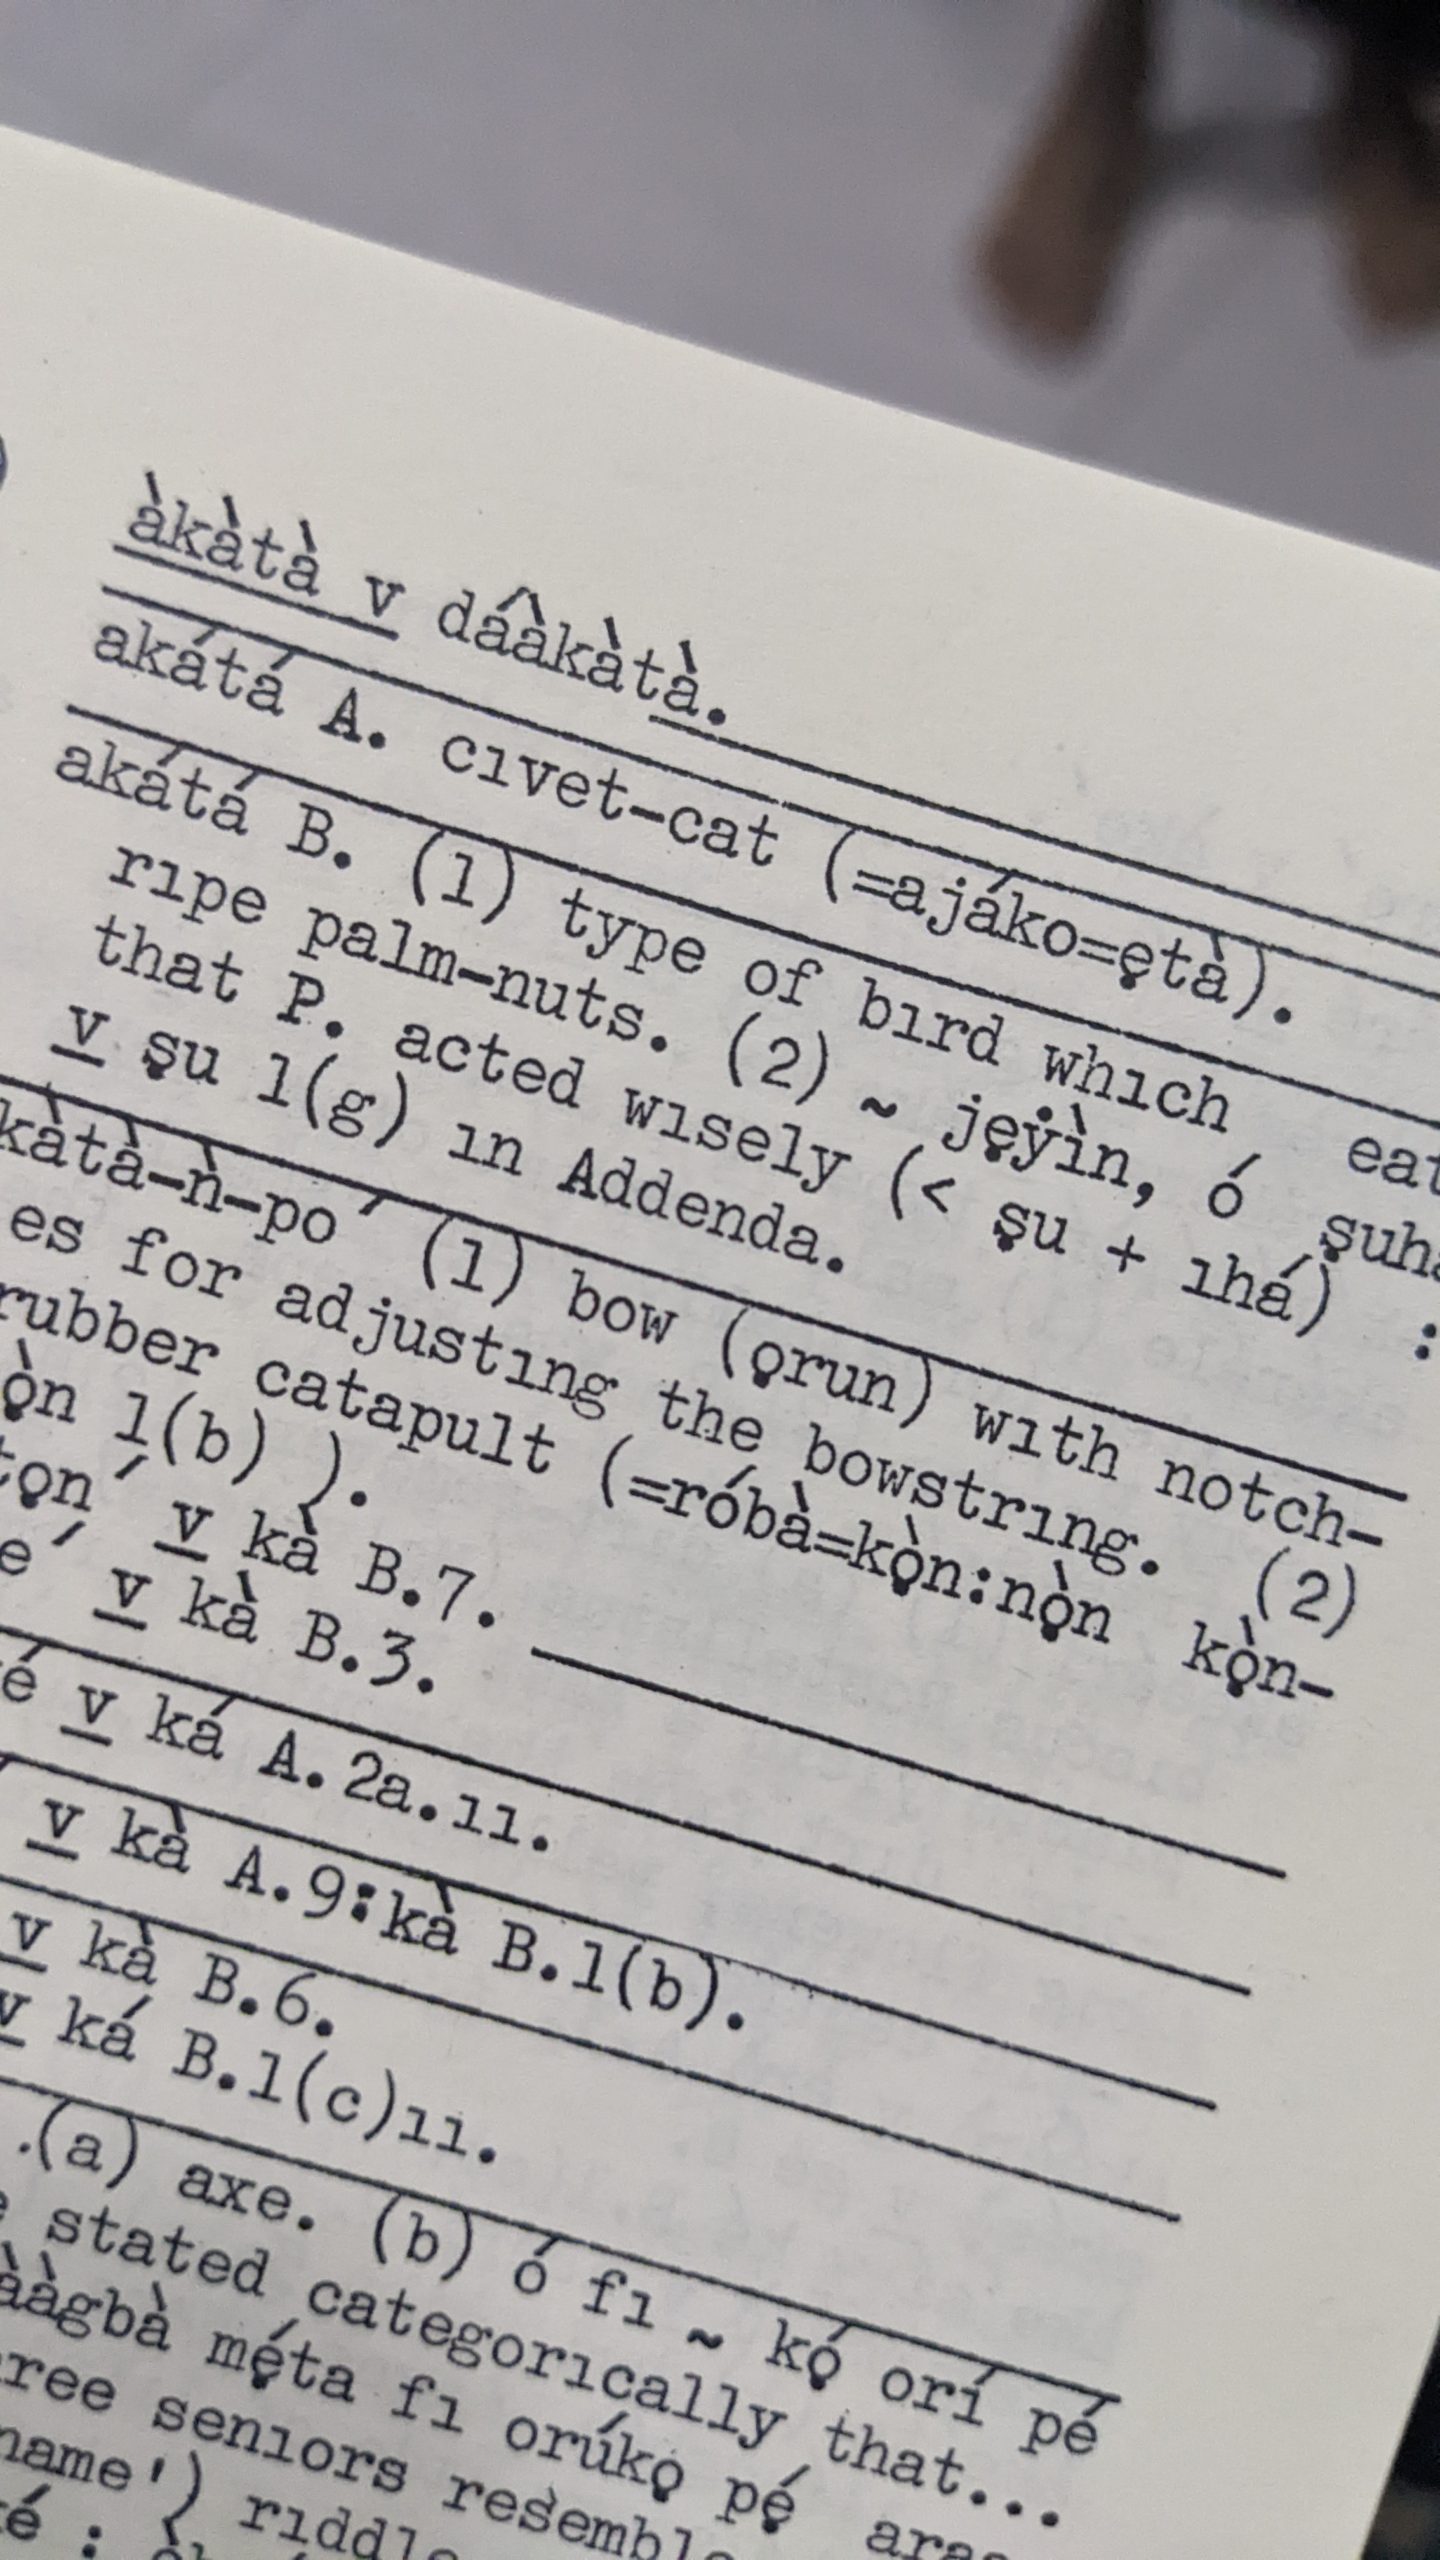 àkàtà v dáàkàtà.
akátá A. cıvet-cat (=ajáko=ẹtà).
akátá B. (1) type of bırd whıch eat
rıpe palm-nuts. (2) ~ jẹyìn, ó ṣuh
that P. acted wısely (< ṣu + ıhá) :
v ṣu 1(g) ın Addenda.
kàtà-ǹ-pó (1) bow (ọrun) wıth notch-
es for adjustıng the bowstrıng. (2)
rubber catapult (=róbà=kọ̀n:nọ̀n kọ̀n-
ọ̀n 1(b) ).
tọn´ v kà B.7.
e´ v kà B.3.
é v ká A.2a.ıı.
v kà A.9:kà B.1(b).
v kà B.6.
v ká B.1(c)ıı.
.(a) axe. (b) ó fı ~ kọ́ orí pé
stated categorıcally that...
ààgbà mẹ́ta fı orúkọ pẹ́ ara
ree senıors resembl
name') rıddl
é :